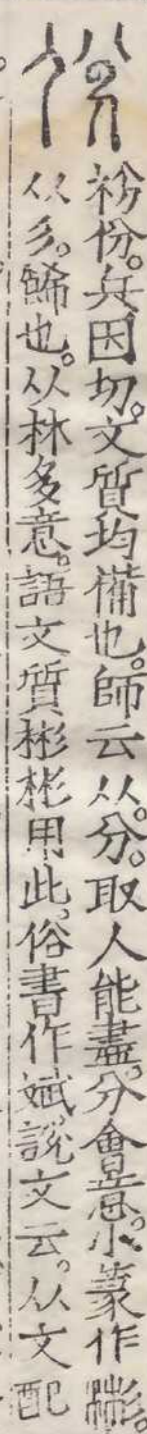 䘰份。兵因切。文質均備也。師云从。分。取人能盡分會意。小篆作彬。
从彡。飾也。从林多意。語文質彬彬用此。俗書作斌。說文云。从文配